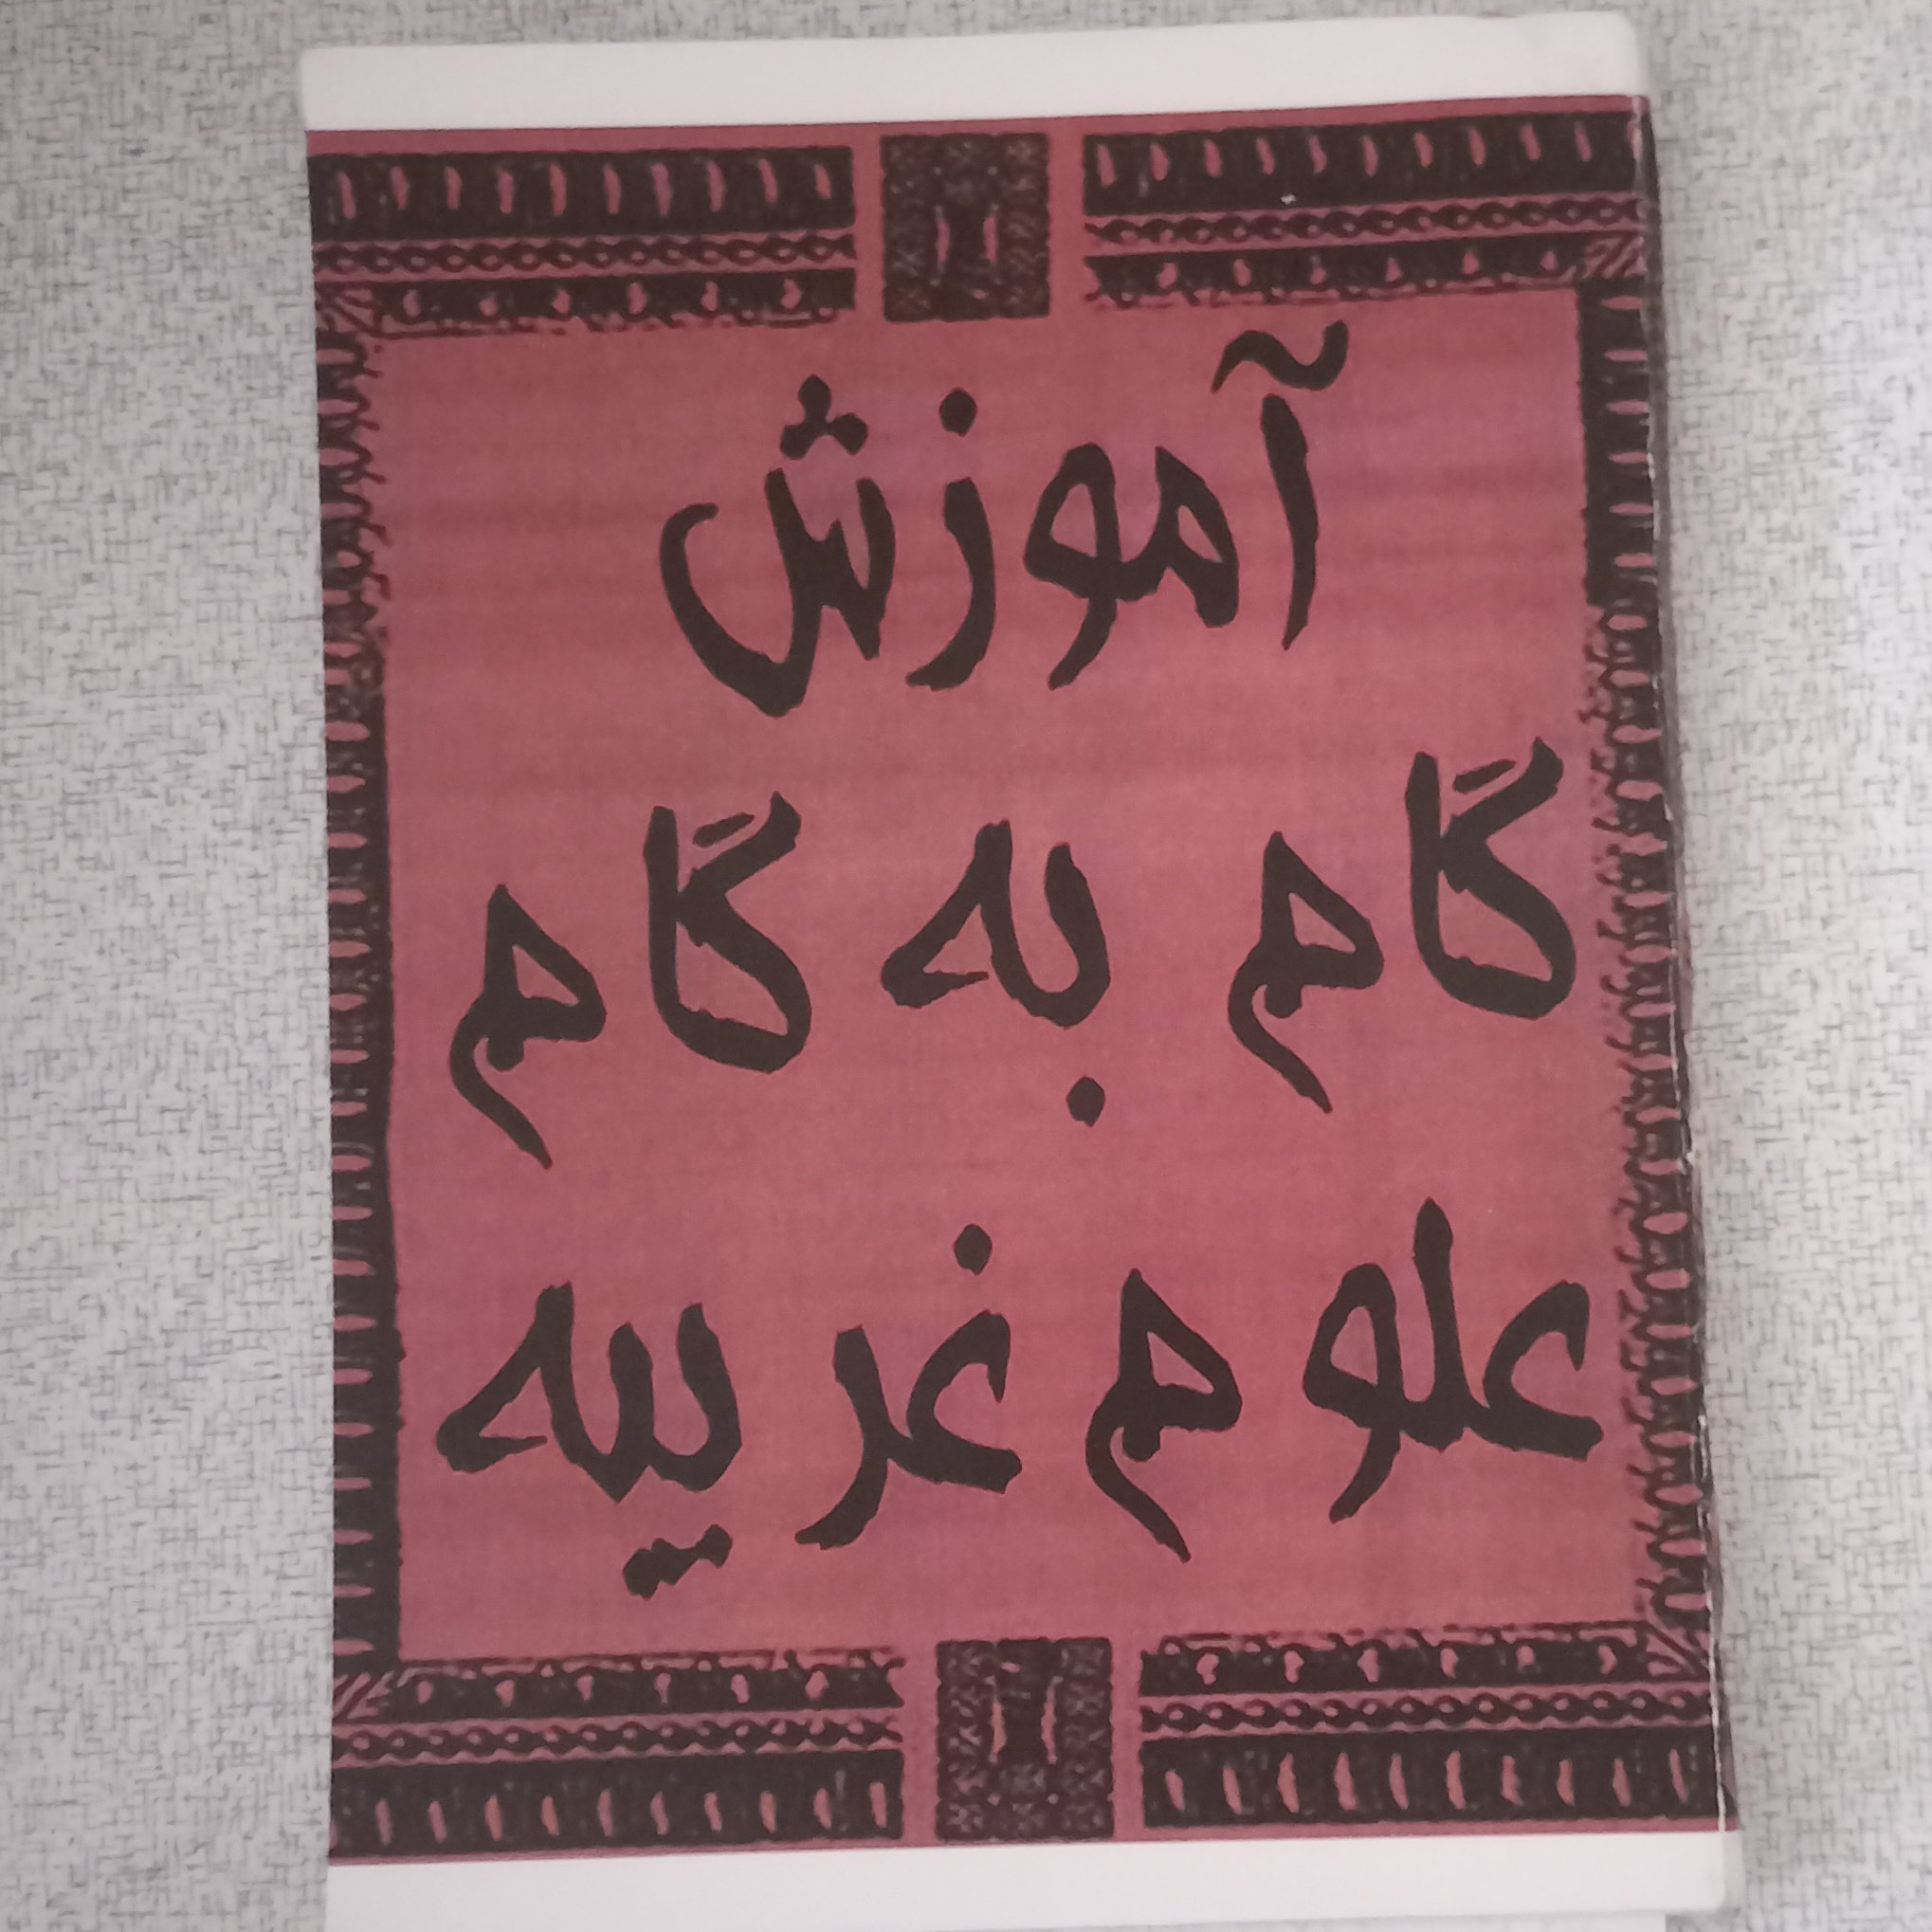 آموزش
گام به گام
علوم غرییه